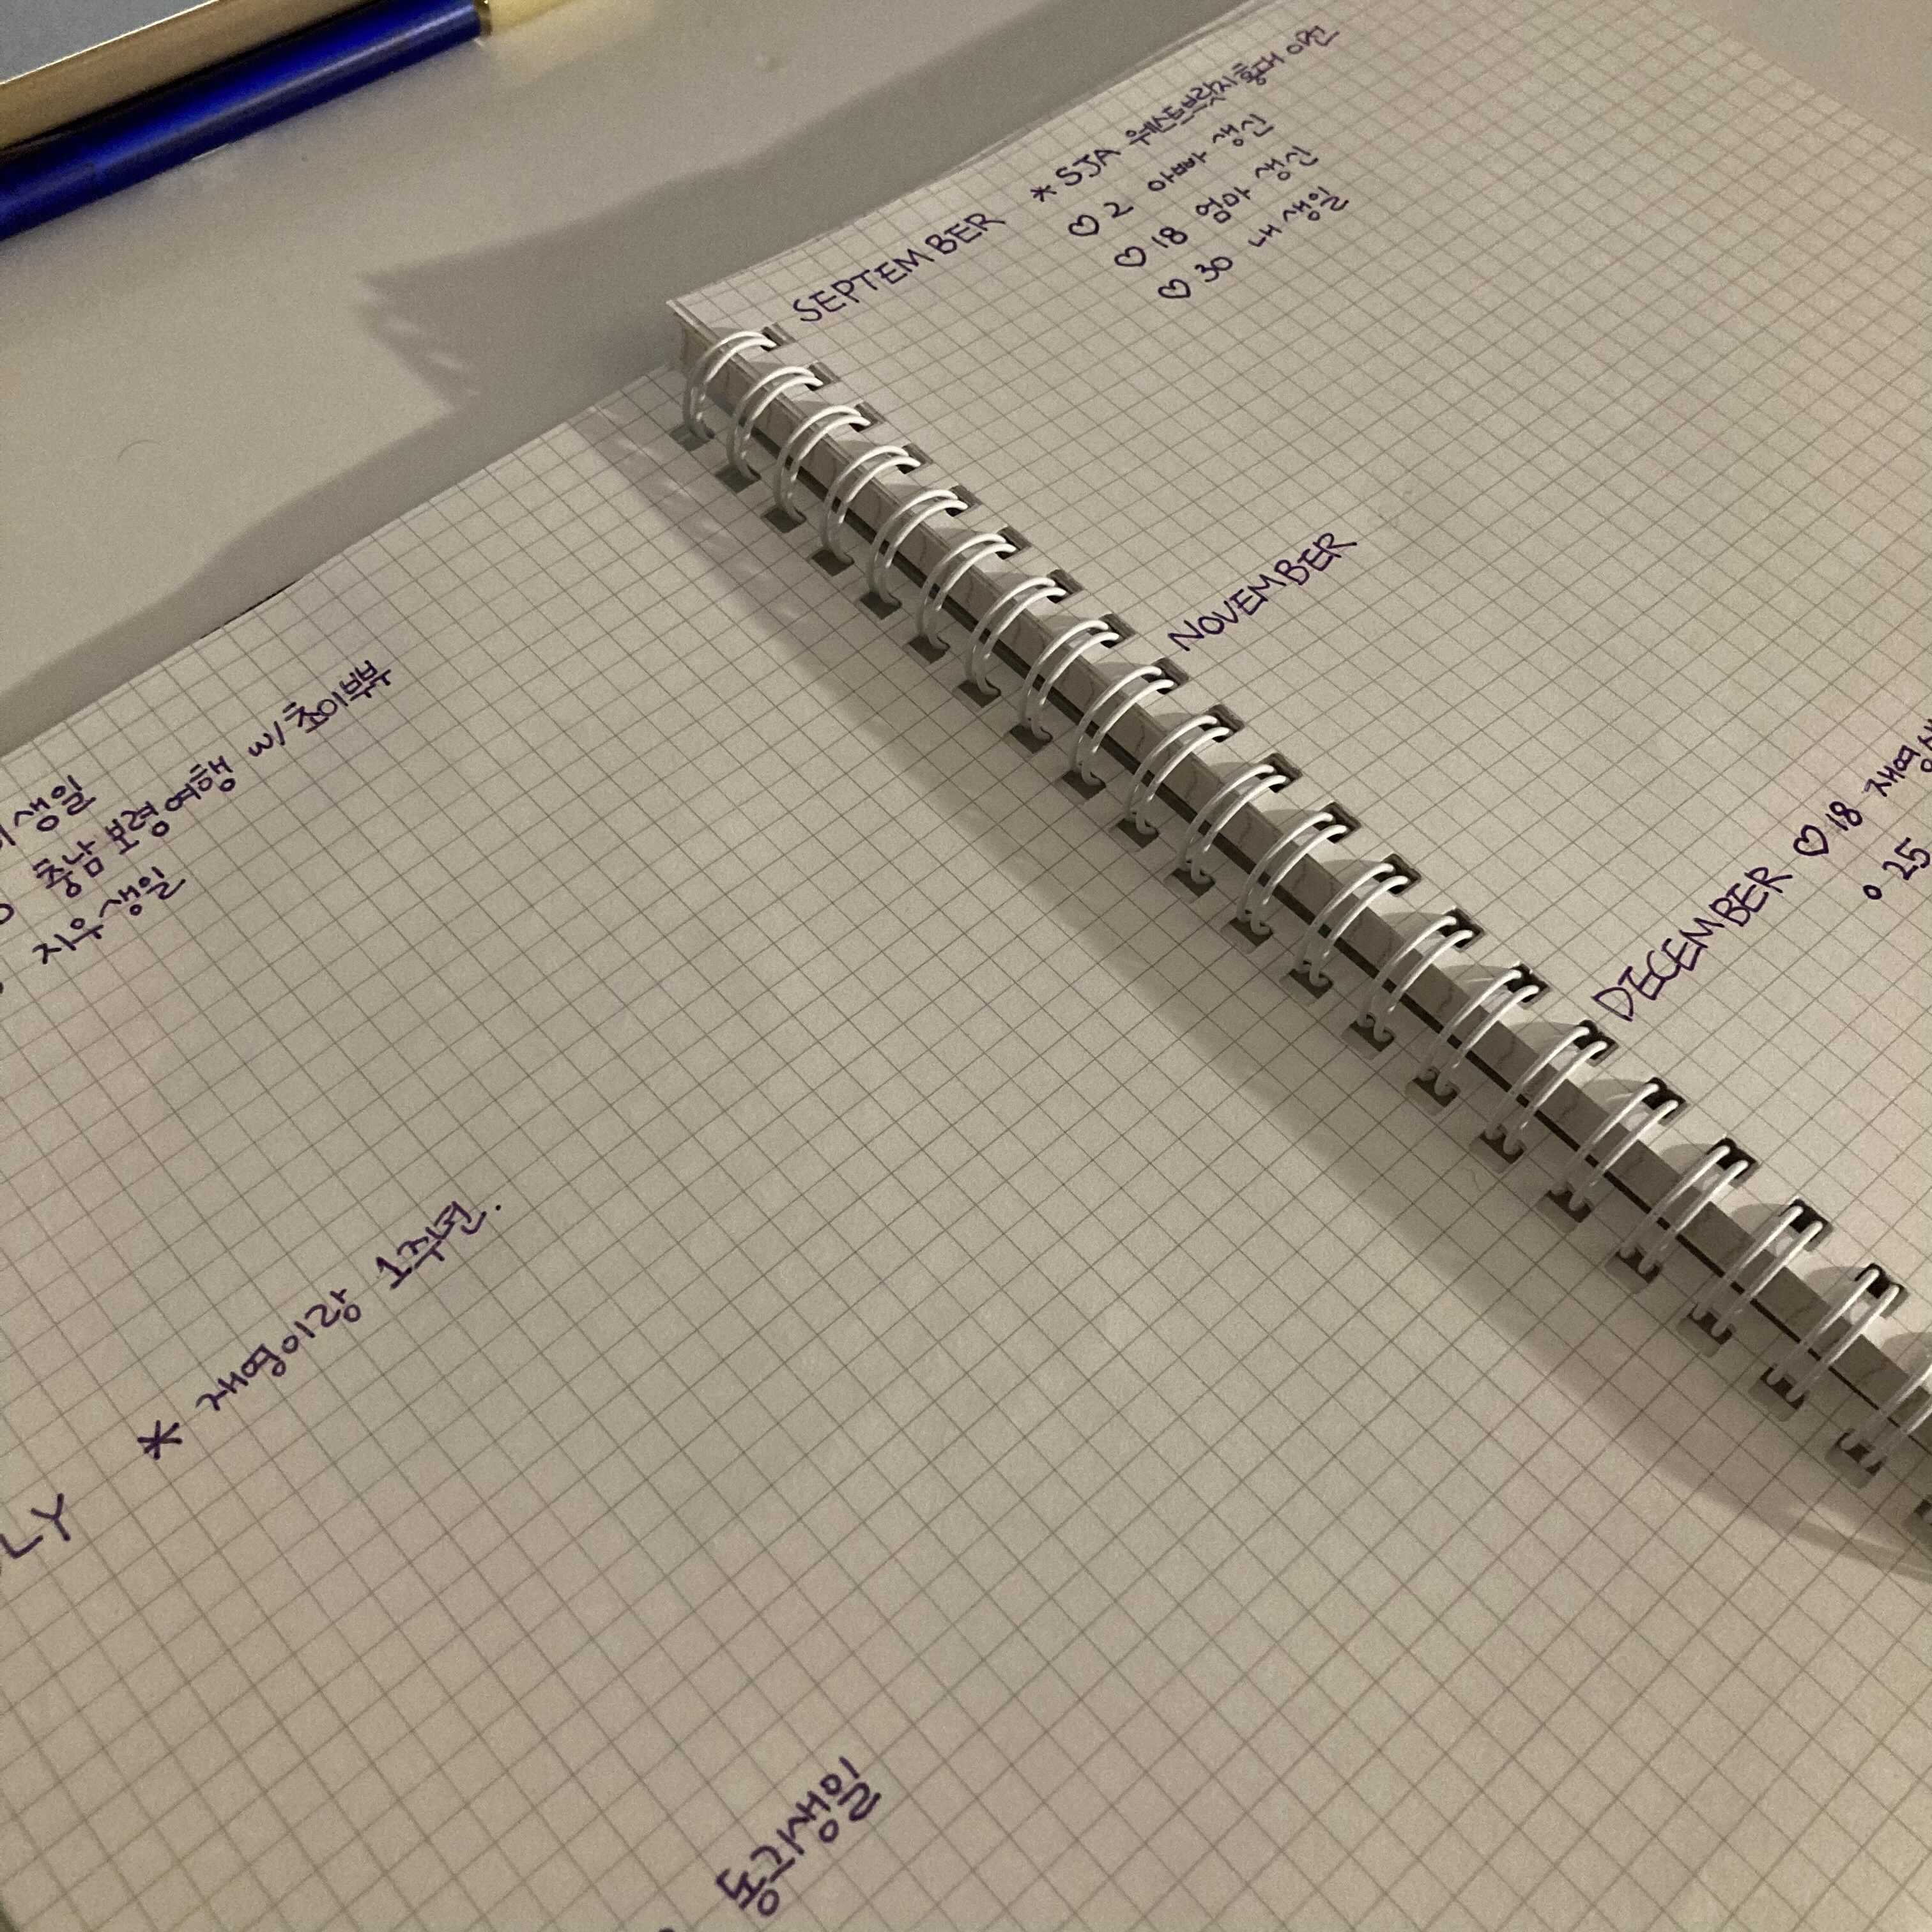 생일
충남 보령여행 w/초이부부
지우생일
LY * 재영이랑 1주년.
동기생일
SEPTEMBER * SJA 웨스트브릿지 홍대 이전
♡ 2 아빠 생신
♡ 18 엄마 생신
♡ 30 내 생일
NOVEMBER
DECEMBER ♡ 18 재영
• 25